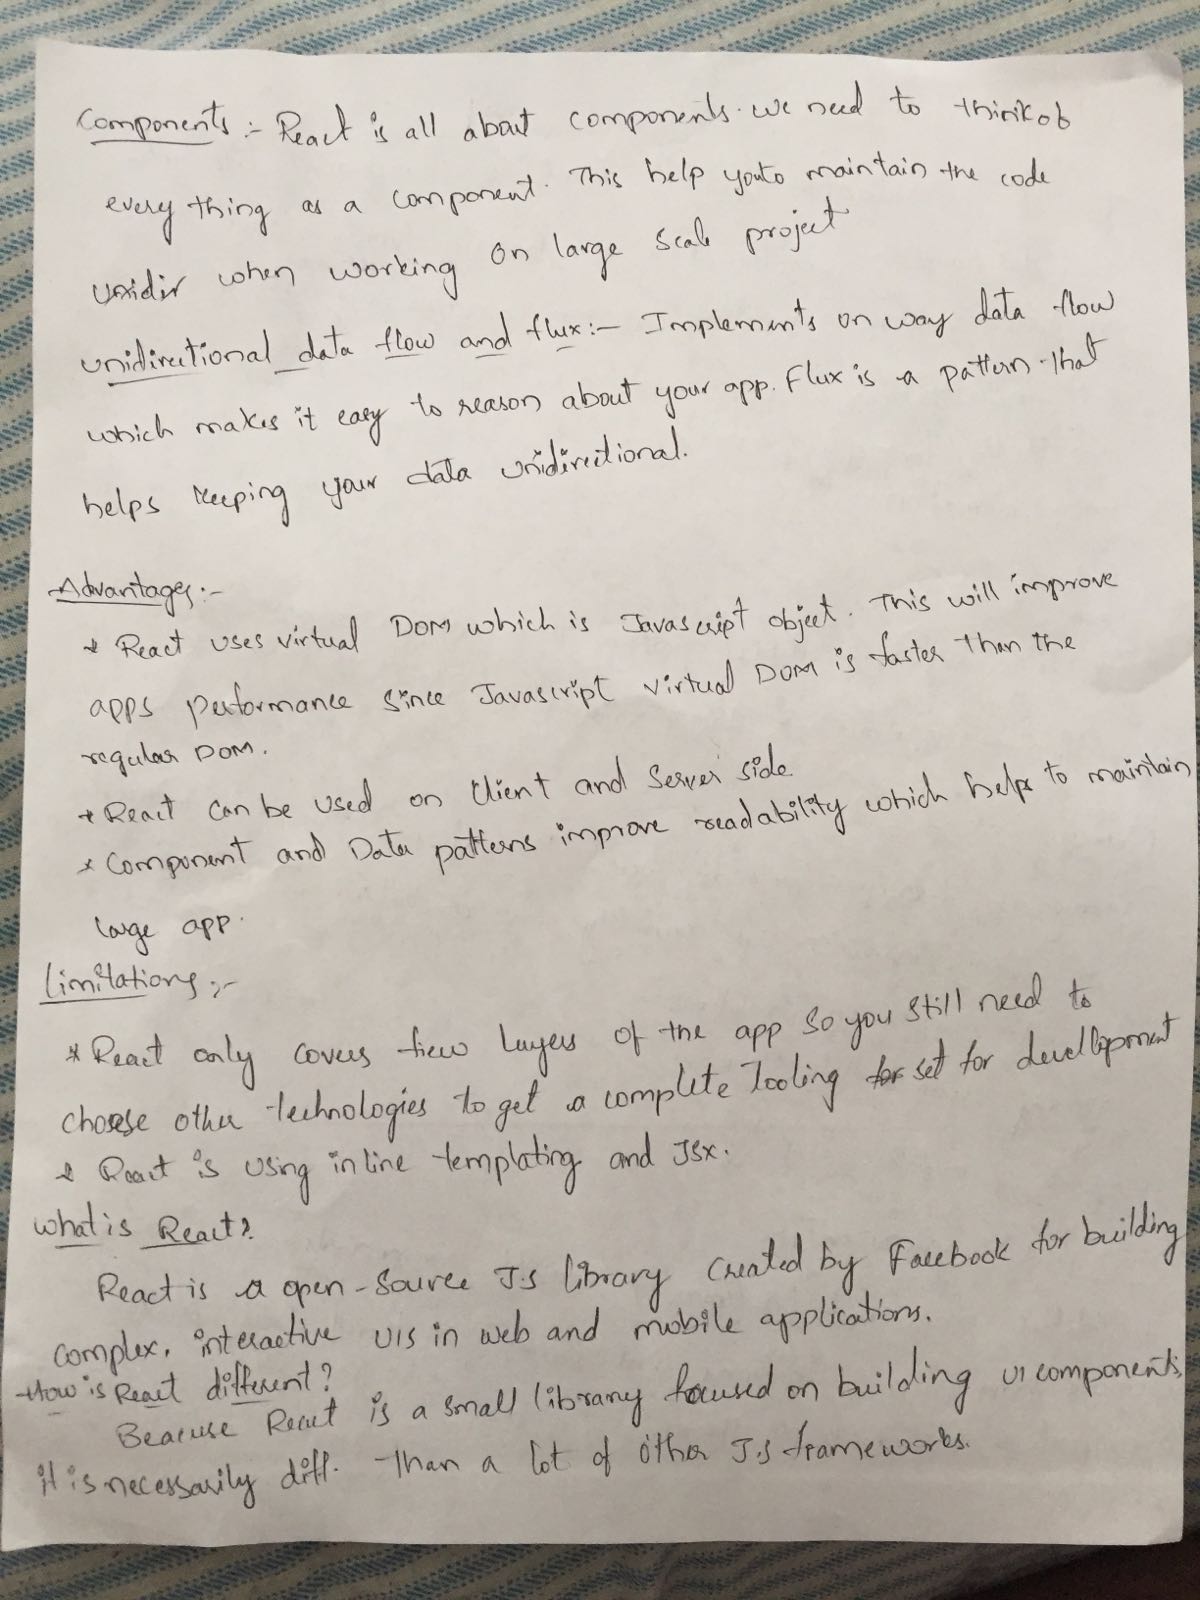 Components :- React is all about components. we need to thinkof
every thing as a component. This help youto maintain the code
unidir when working on large scale project
unidirectional data flow and flux:- Implements on way data flow
which makes it easy to reason about your app. Flux is a pattern that
helps keeping your data unidirectional.
Advantages:-
* React uses virtual DOM which is Javascript object. This will improve
apps performance since Javascript virtual DOM is faster than the
regular DOM.
* React can be used on Client and Server side
* Component and Data patterns improve readability which helps to maintain
large app.
Limitations:-
* React only covers view layers of the app so you still need to
choose other technologies to get a complete Tooling for set for devellopment
* React is using inline templating and JSX.
what is React?
React is a open-source J.S library created by Facebook for building
complex, interactive UIS in web and mobile applications.
How is React different?
Beacuse React is a small library focused on building UI components,
it is necessarily diff. than a lot of other J.S frameworks.